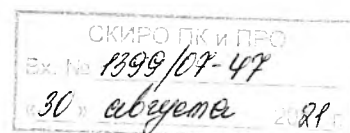 СКИРО ПК и ПРО
Вх. № 1399/07-47
«30» августа 2021 г.